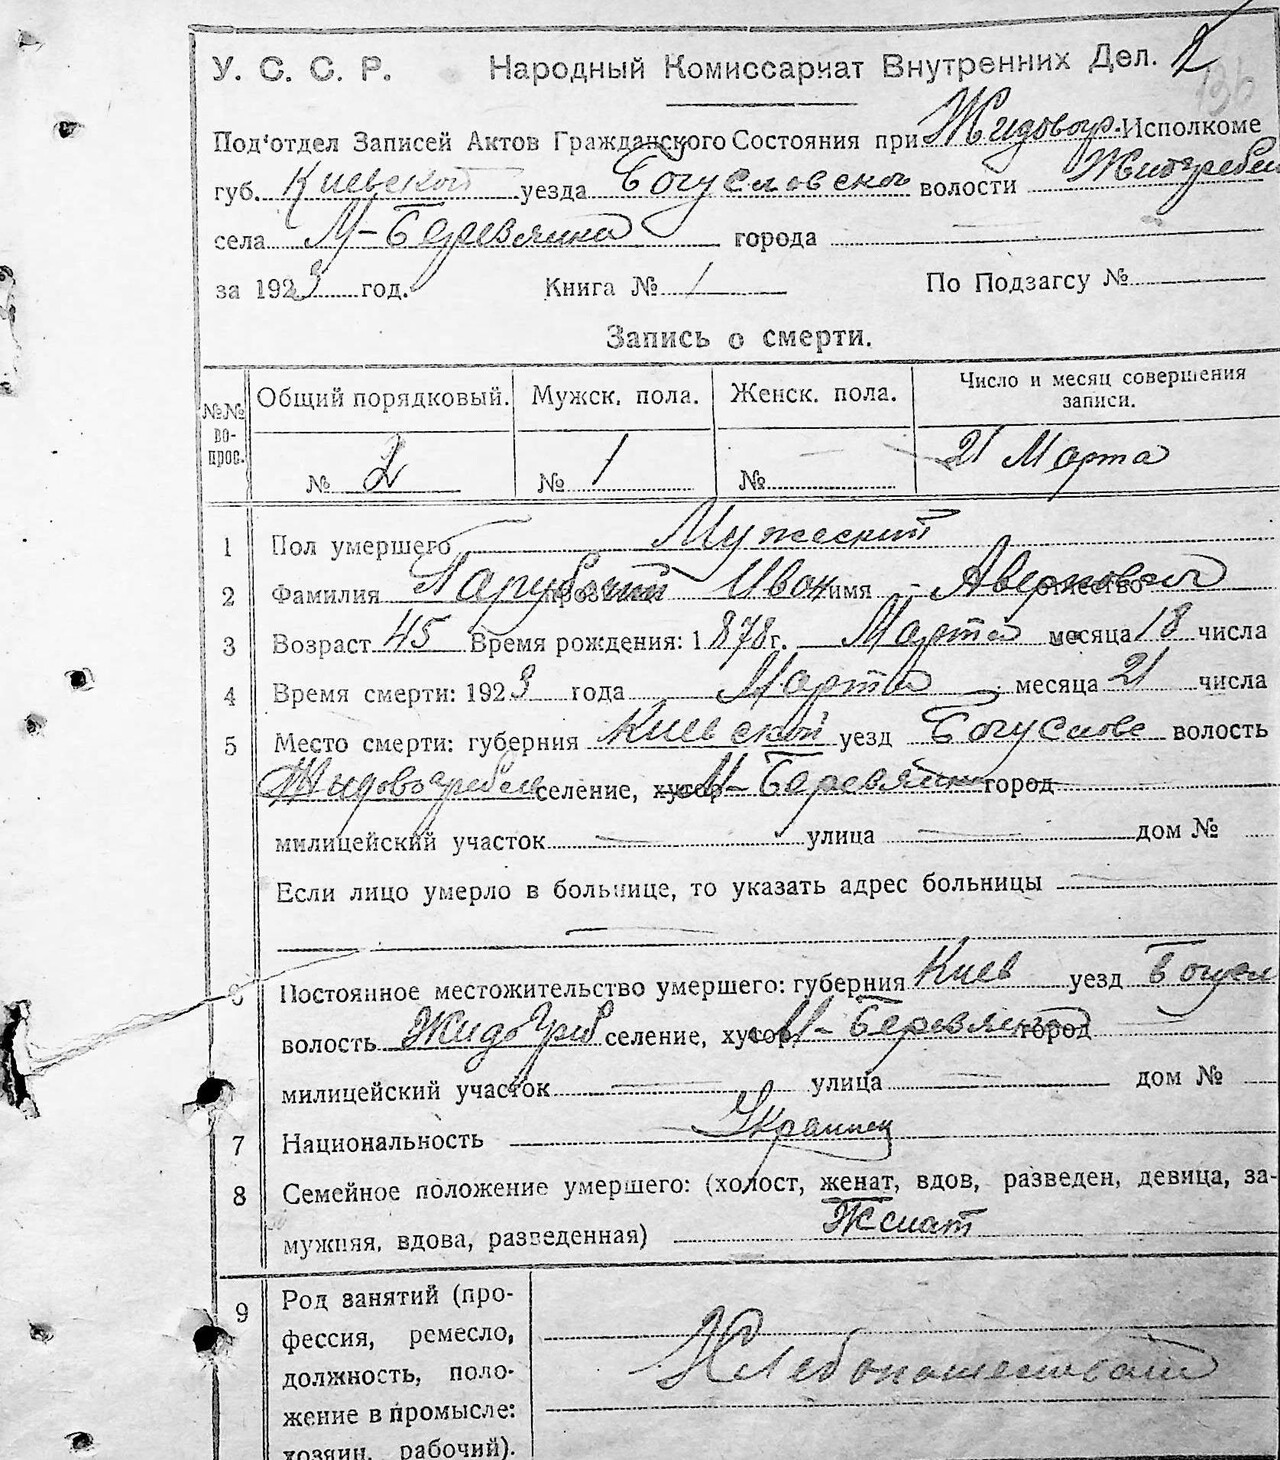 У. С. С. Р. Народный Комиссариат Внутренних Дел. 2
136
Под'отдел Записей Актов Гражданского Состояния при Жидовогр. Исполкоме
губ. Киевской уезда Богуславской волости
села М-Березянка города
за 1923 год. Книга № 1 По Подзагсу №
Запись о смерти.
№№ вопрос. Общий порядковый. Мужск. пола. Женск. пола. Число и месяц совершения записи.
№ 2 № 1 № 21 Марта
1 Пол умершего Мужеский
2 Фамилия Парубчий Иван имя Аверкович отчество
3 Возраст 45 Время рождения: 1878 г. Марта месяца 18 числа
4 Время смерти: 1923 года Марта месяца 21 числа
5 Место смерти: губерния Киевской уезд Богуславс волость
Жидовогребел селение, хутор М-Березянка город
милицейский участок улица дом №
Если лицо умерло в больнице, то указать адрес больницы
6 Постоянное местожительство умершего: губерния Киев уезд Богусл
волость Жидогреб селение, хутор М-Березянка город
милицейский участок улица дом №
7 Национальность Украинец
8 Семейное положение умершего: (холост, женат, вдов, разведен, девица, за-
мужняя, вдова, разведенная) Женат
9 Род занятий (про-
фессия, ремесло,
должность, поло-
жение в промысле:
хозяин, рабочий).